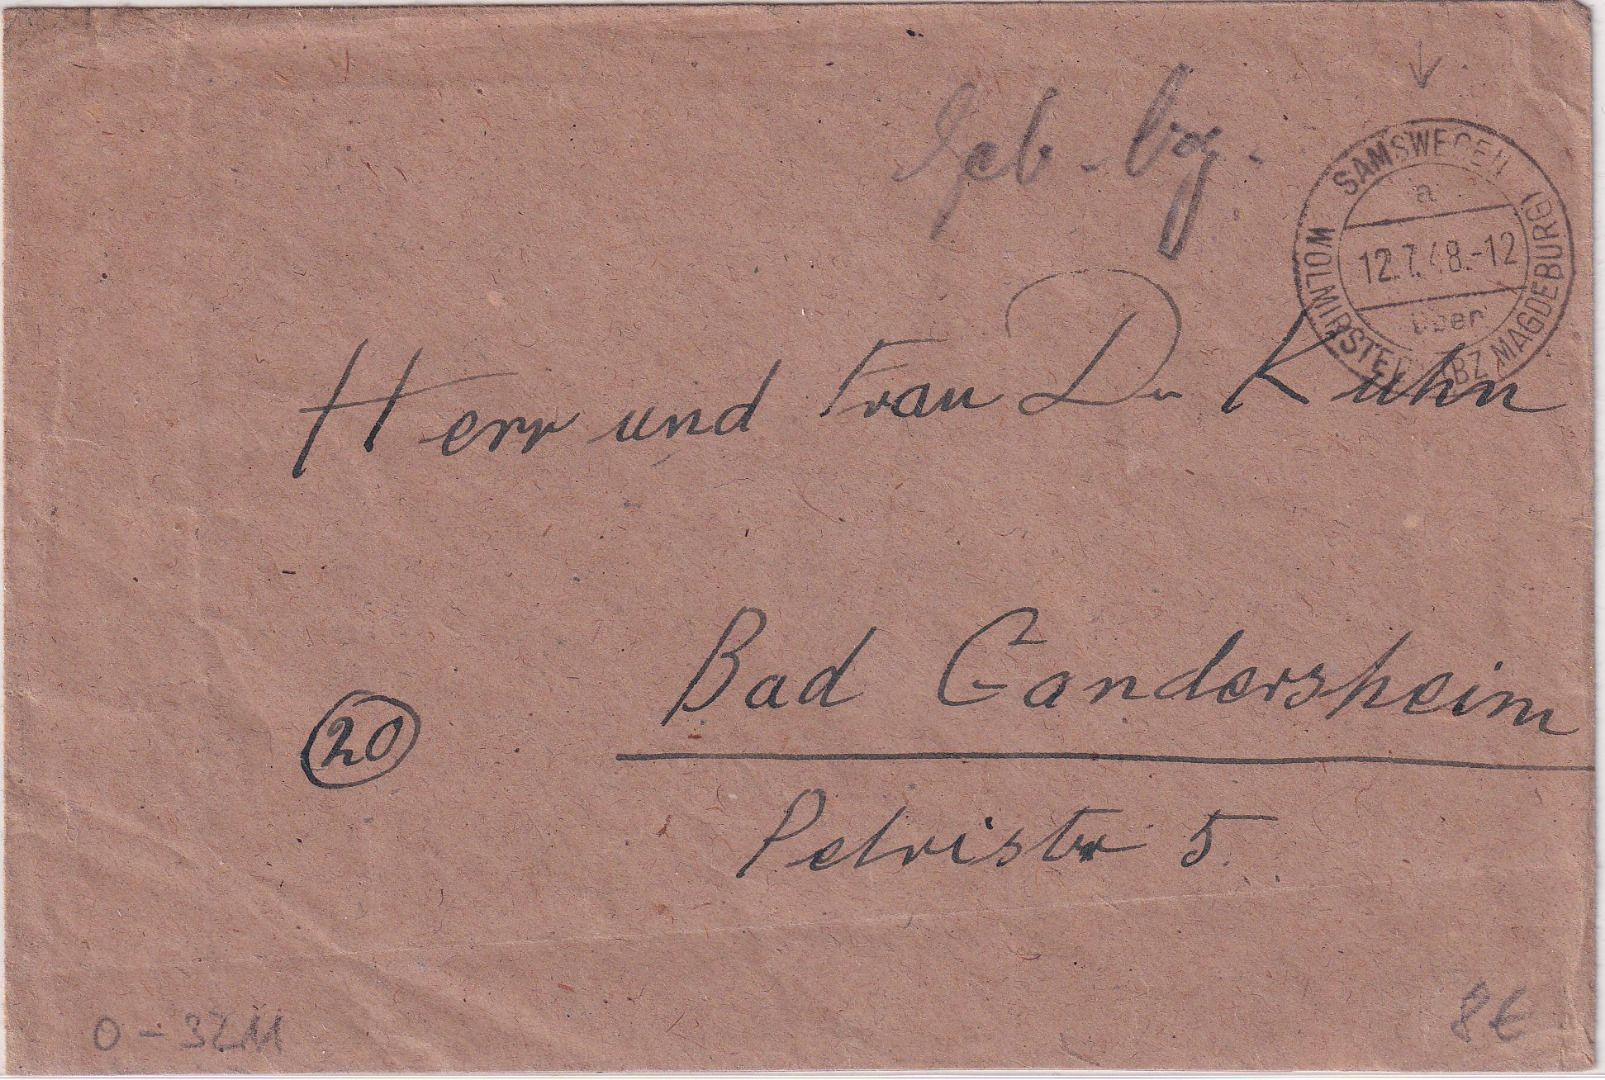 Geb. bez.
SAMSWEGEN
a
12.7.48.-12
über
WOLMIRSTEDT (BZ MAGDEBURG)
Herr und Frau Dr Kuhn
Bad Gandersheim
20
Petristr 5.
O-3211
8€